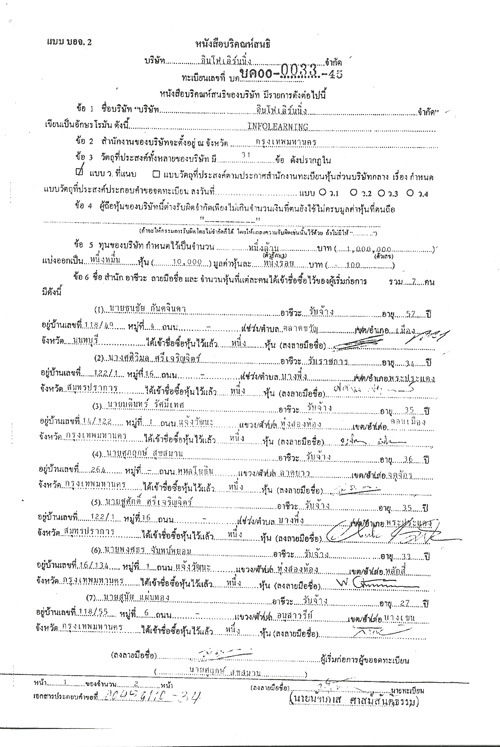 แบบ บอจ. 2
หนังสือบริคณห์สนธิ
บริษัท อินโฟเลิร์นนิ่ง จำกัด
ทะเบียนเลขที่ บค บค00-0033-45
หนังสือบริคณห์สนธิของบริษัท มีรายการดังต่อไปนี้
ข้อ 1 ชื่อบริษัท "บริษัท อินโฟเลิร์นนิ่ง จำกัด"
เขียนเป็นอักษรโรมัน ดังนี้ INFOLEARNING
ข้อ 2 สำนักงานของบริษัทจะตั้งอยู่ ณ จังหวัด กรุงเทพมหานคร
ข้อ 3 วัตถุที่ประสงค์ทั้งหลายของบริษัท มี 31 ข้อ ดังปรากฏใน
แบบ ว. ที่แนบ แบบวัตถุที่ประสงค์ตามประกาศสำนักงานทะเบียนหุ้นส่วนบริษัทกลาง เรื่อง กำหนด
แบบวัตถุที่ประสงค์ประกอบคำขอจดทะเบียน ลงวันที่ แบบ ว.1 ว.2 ว.3 ว.4
ข้อ 4 ผู้ถือหุ้นของบริษัทนี้ต่างรับผิดจำกัดเพียงไม่เกินจำนวนเงินที่ตนยังใช้ไม่ครบมูลค่าหุ้นที่ตนถือ
ข้อ 5 ทุนของบริษัท กำหนดไว้เป็นจำนวน หนึ่งล้าน บาท ( 1,000,000 )
(ตัวอักษร) (ตัวเลข)
แบ่งออกเป็น หนึ่งหมื่น หุ้น ( 10,000 ) มูลค่าหุ้นละ หนึ่งร้อย บาท ( 100 )
ข้อ 6 ชื่อ สำนัก อาชีวะ ลายมือชื่อ และ จำนวนหุ้นที่แต่ละคนได้เข้าชื่อซื้อไว้ของผู้เริ่มก่อการ รวม 7 คน
มีดังนี้
(1) นายธนชัย อาชีวะ รับจ้าง อายุ 57 ปี
อยู่บ้านเลขที่ 118/49 หมู่ที่ 4 ถนน - ตำบล ตลาดขวัญ อำเภอ เมือง
จังหวัด นนทบุรี ได้เข้าชื่อซื้อหุ้นไว้แล้ว หนึ่ง หุ้น (ลงลายมือชื่อ)
(2) นางศศิวิมล ศรีเจริญจิตร์ อาชีวะ รับราชการ อายุ 34 ปี
อยู่บ้านเลขที่ 122/1 หมู่ที่ 16 ถนน - ตำบล บางพึ่ง อำเภอ พระประแดง
จังหวัด สมุทรปราการ ได้เข้าชื่อซื้อหุ้นไว้แล้ว หนึ่ง หุ้น (ลงลายมือชื่อ)
(3) รัศมีเทศ อาชีวะ รับจ้าง อายุ 35 ปี
อยู่บ้านเลขที่ 14/122 หมู่ที่ 1 ถนน แจ้งวัฒนะ แขวง ทุ่งสองห้อง เขต
จังหวัด กรุงเทพมหานคร ได้เข้าชื่อซื้อหุ้นไว้แล้ว หนึ่ง หุ้น (ลงลายมือชื่อ)
(4) นายศุภฤกษ์ สุขสมาน อาชีวะ รับจ้าง อายุ 36 ปี
อยู่บ้านเลขที่ 264 หมู่ที่ - ถนน พหลโยธิน แขวง ลาดยาว เขต จตุจักร
จังหวัด กรุงเทพมหานคร ได้เข้าชื่อซื้อหุ้นไว้แล้ว หนึ่ง หุ้น (ลงลายมือชื่อ)
(5) นายชูศักดิ์ ศรีเจริญจิตร์ อาชีวะ รับจ้าง อายุ 35 ปี
อยู่บ้านเลขที่ 122/1 หมู่ที่ 16 ถนน - ตำบล บางพึ่ง อำเภอ พระประแดง
จังหวัด สมุทรปราการ ได้เข้าชื่อซื้อหุ้นไว้แล้ว หนึ่ง หุ้น (ลงลายมือชื่อ)
(6) นายพงศธร จันทน์หอม อาชีวะ รับจ้าง อายุ 33 ปี
อยู่บ้านเลขที่ 16/134 หมู่ที่ 1 ถนน แจ้งวัฒนะ แขวง ทุ่งสองห้อง เขต หลักสี่
จังหวัด กรุงเทพมหานคร ได้เข้าชื่อซื้อหุ้นไว้แล้ว หนึ่ง หุ้น (ลงลายมือชื่อ)
(7) นายสุมิท แผ่นทอง อาชีวะ รับจ้าง อายุ 27 ปี
อยู่บ้านเลขที่ 118/55 หมู่ที่ 6 ถนน - แขวง อนุสาวรีย์ เขต บางเขน
จังหวัด กรุงเทพมหานคร ได้เข้าชื่อซื้อหุ้นไว้แล้ว หนึ่ง หุ้น (ลงลายมือชื่อ)
(ลงลายมือชื่อ) ผู้เริ่มก่อการผู้ขอจดทะเบียน
( นายศุภฤกษ์ สุขสมาน )
หน้า 1 ของจำนวน 2 หน้า (ลงลายมือชื่อ) นายทะเบียน
เอกสารประกอบคำขอที่